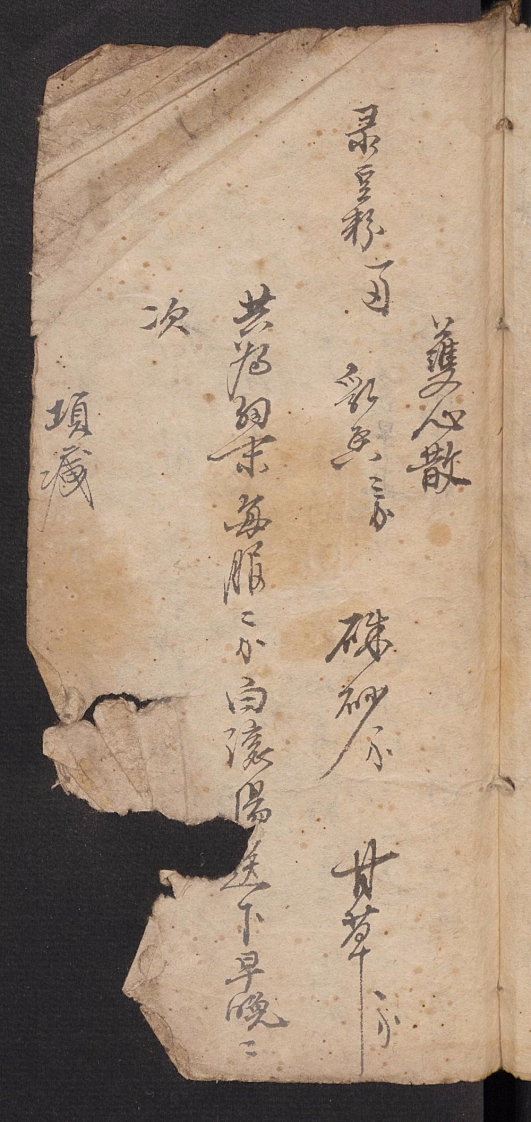 護心散
录豆粉一両 乳香二分 硃砂分 甘草二分
共為細末每服二分白滾湯送下早晚二
次
項臧